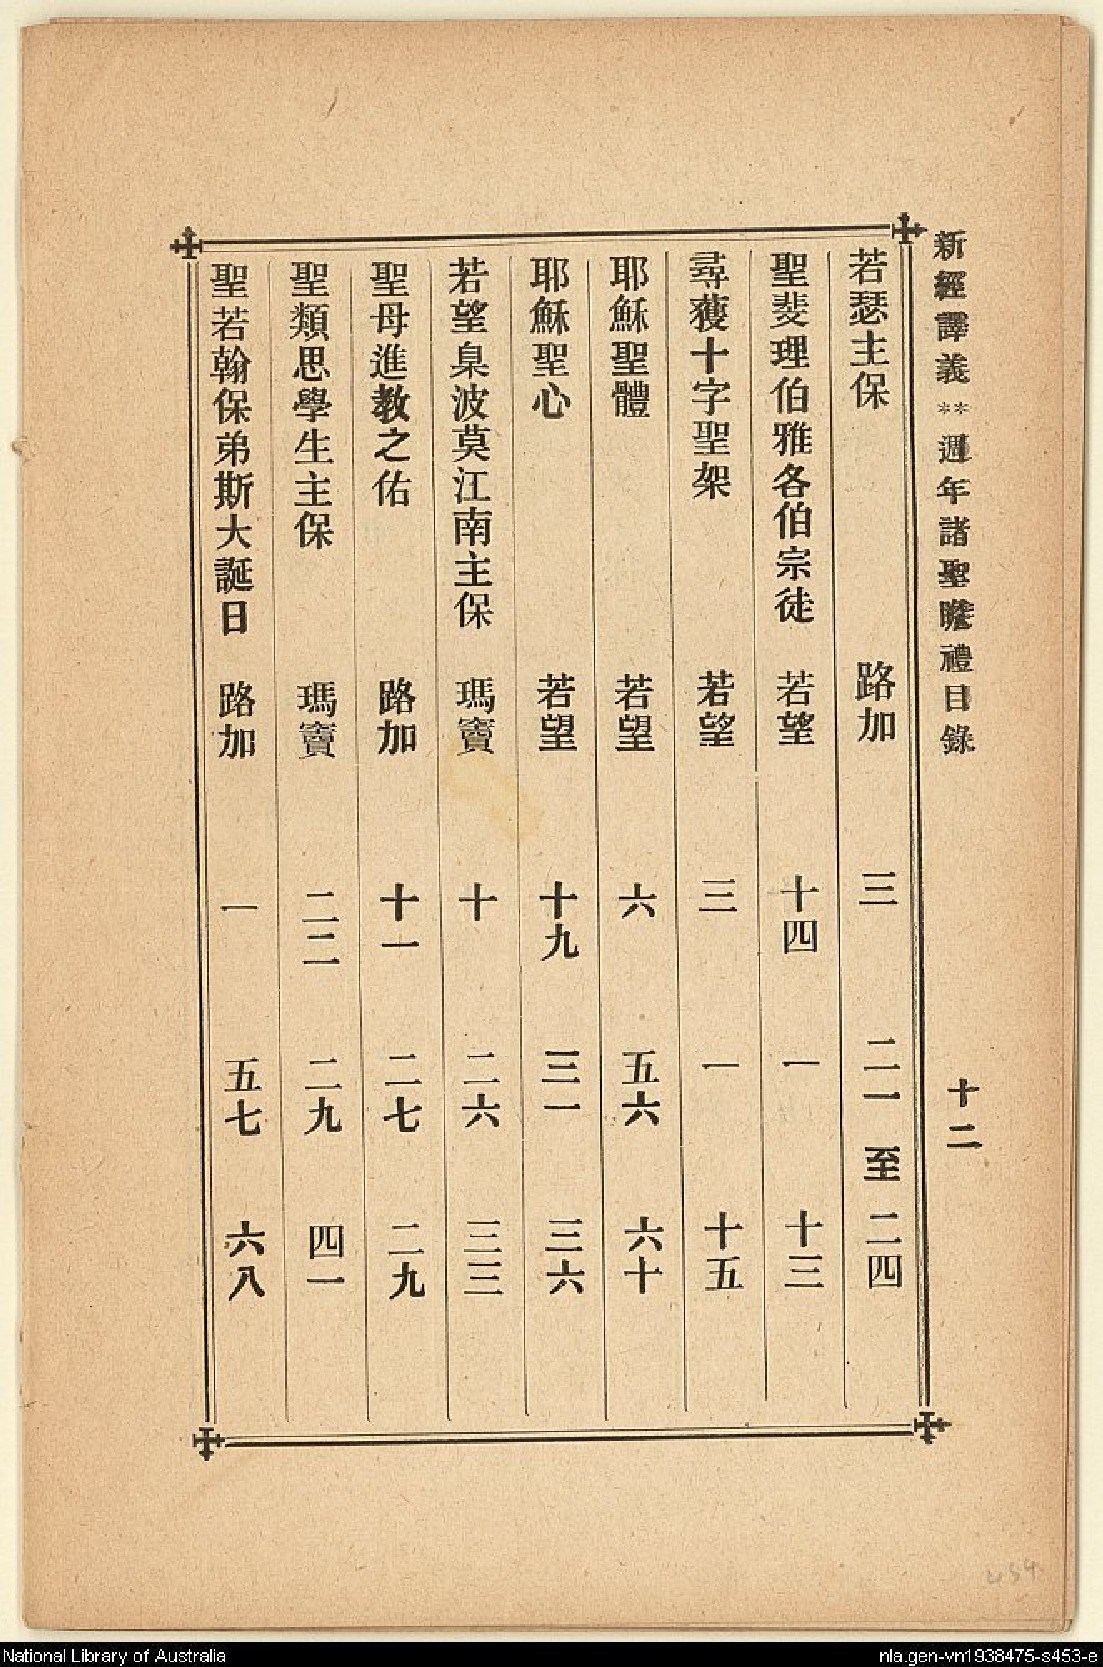 新經譯義**週年諸聖瞻禮目錄 十二
若瑟主保 路加 三 二一至二四
聖斐理伯雅各伯宗徒 若望 十四 一 十三
尋獲十字聖架 若望 三 一 十五
耶穌聖體 若望 六 五六 六十
耶穌聖心 若望 十九 三一 三六
若望臬波莫江南主保 瑪竇 十 二六 三三
聖母進教之佑 路加 十一 二七 二九
聖類思學生主保 瑪竇 二二 二九 四一
聖若翰保弟斯大誕日 路加 一 五七 六八
454
National Library of Australia
nla.gen-vn1938475-s453-e